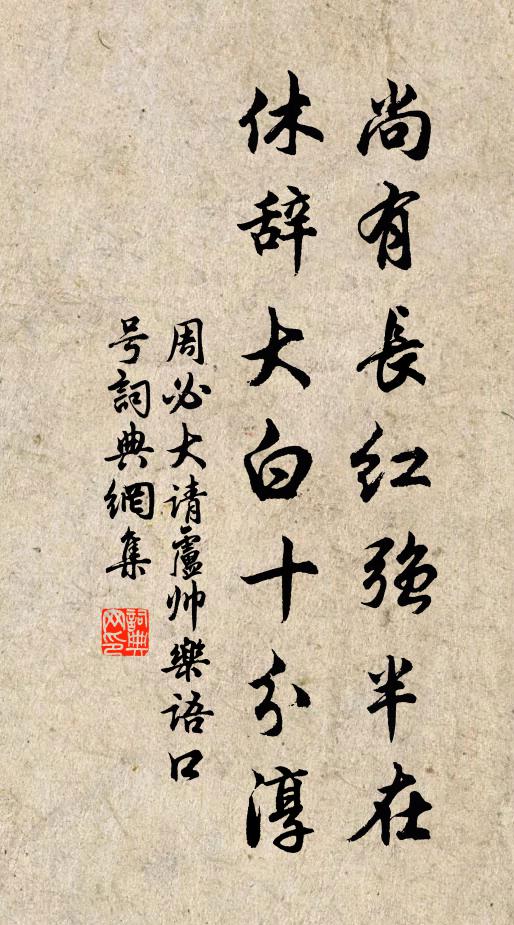 尚有長红强半在
休辞大白十分淳
周必大请盧帅樂语口
号詞典網集
詞典网印